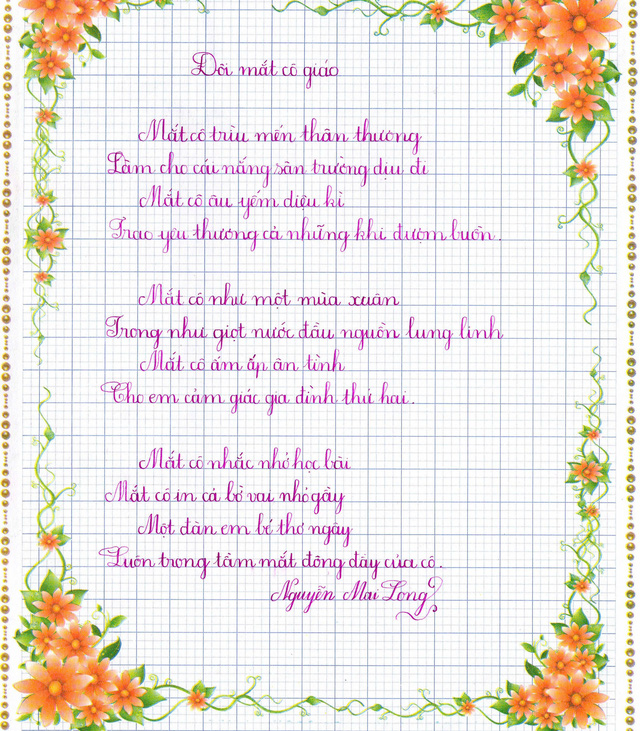 Đôi mắt cô giáo
Mắt cô trìu mến thân thương
Làm cho cái nắng sân trường dịu đi
Mắt cô âu yếm diệu kì
Trao yêu thương cả những khi đượm buồn.
Mắt cô như một mùa xuân
Trong như giọt nước đầu nguồn lung linh
Mắt cô ấm áp ân tình
Cho em cảm giác gia đình thứ hai.
Mắt cô nhắc nhở học bài
Mắt cô in cả bờ vai nhỏ gầy
Một đàn em bé thơ ngây
Luôn trong tầm mắt đong đầy của cô.
Nguyễn Mai Long